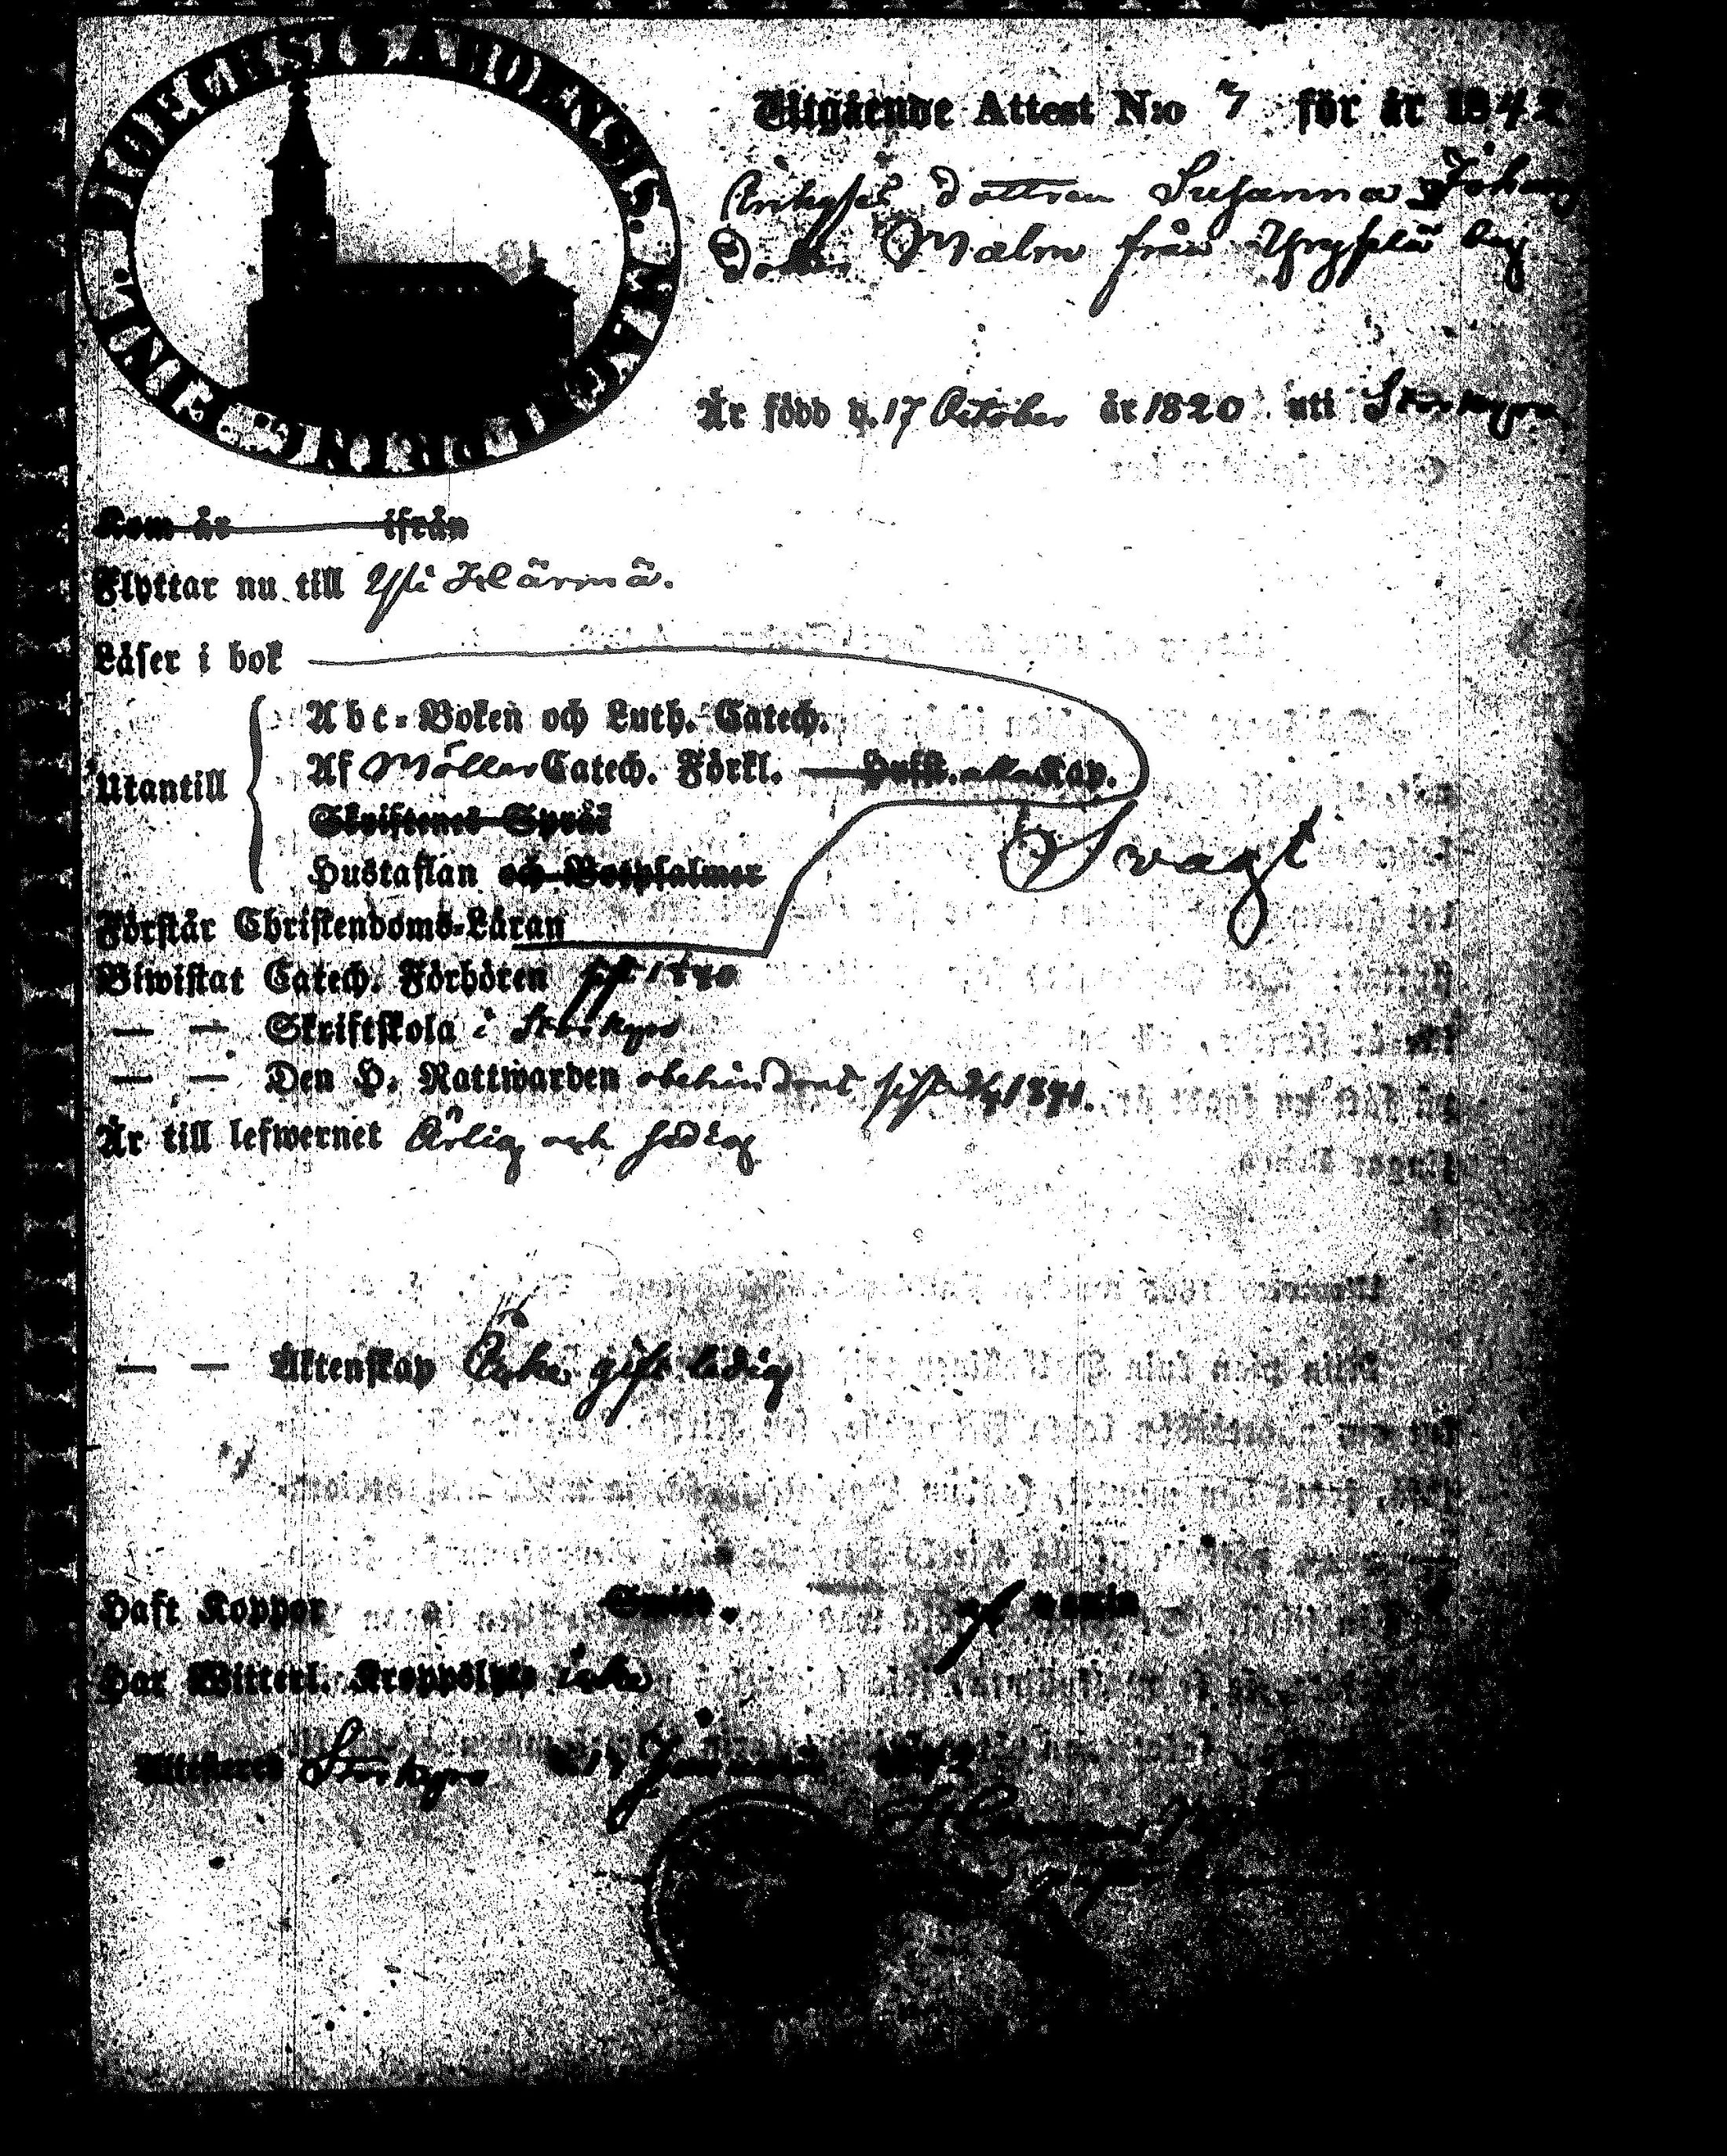 DIOECESIS ABOENSIS. MAGN. PRINC. FINL.
Utgående Attest N:o 7 för år 1842
dottren Susanna Johans
Dotter Malm från by
Är född d. 17 October år 1820 uti Storkyro
Kom år ifrån
Flyttar nu till Yli Härmä.
Läser i bok
Abc-Boken och Luth. Catech.
Utantill
Af Möllers Catech. Förkl. Hufst. Kap.
Skriftenes Språk
Svagt
Hustaflan och Botpsalmer
Förstår Christendoms-Läran
Biwistat Catech. Förhören 1840
— — Skriftskola i Storkyro
— — Den H. Nattwarden obehindrad sista 1841.
Är till lefwernet Ärlig och sedlig
— — Äktenskap Icke gift ledig
Haft Koppor Smitt. vaccin
Har Witterl. Kroppslyte icke
Attesteras Storkyro d. Januari 1842